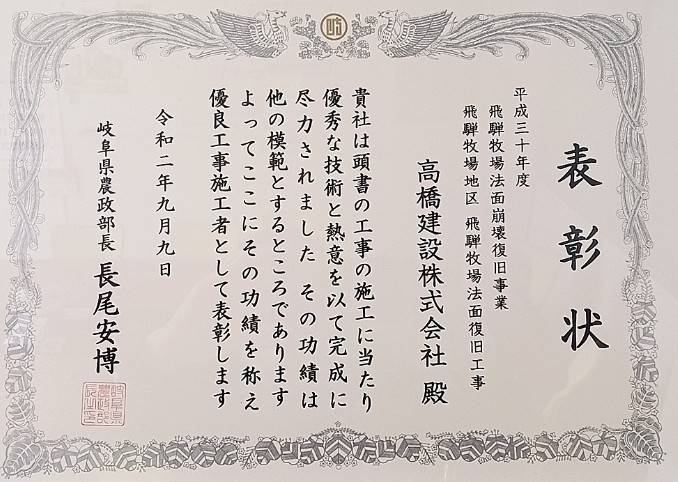 表彰状
平成三十年度
飛騨牧場法面崩壊復旧事業
飛騨牧場地区 飛騨牧場法面復旧工事
高橋建設株式会社 殿
貴社は頭書の工事の施工に当たり
優秀な技術と熱意を以て完成に
尽力されました その功績は
他の模範とするところであります
よってここにその功績を称え
優良工事施工者として表彰します
令和二年九月九日
岐阜県農政部長 長尾安博
岐阜県
農政部
長之印